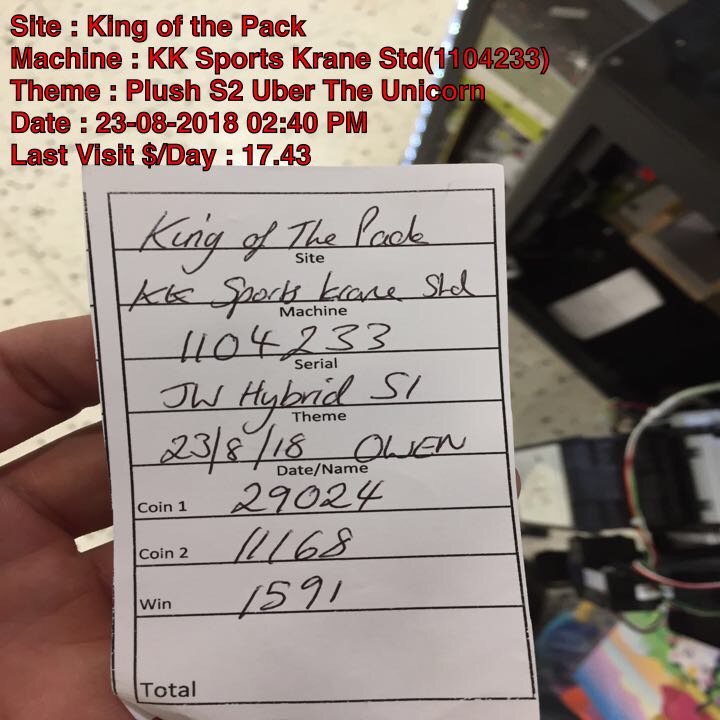 Site : King of the Pack
Machine : KK Sports Krane Std(1104233)
Theme : Plush S2 Uber The Unicorn
Date : 23-08-2018 02:40 PM
Last Visit $/Day : 17.43
King of The Pack
Site
KK Sports Krane Std
Machine
1104233
Serial
JW Hybrid S1
Theme
23/8/18 OWEN
Date/Name
Coin 1 29024
Coin 2 11168
Win 1591
Total